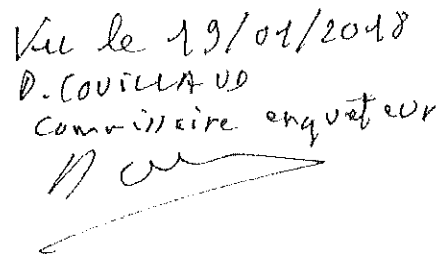 Vu le 19/01/2018
D. COUILLAUD
Commissaire enquêteur